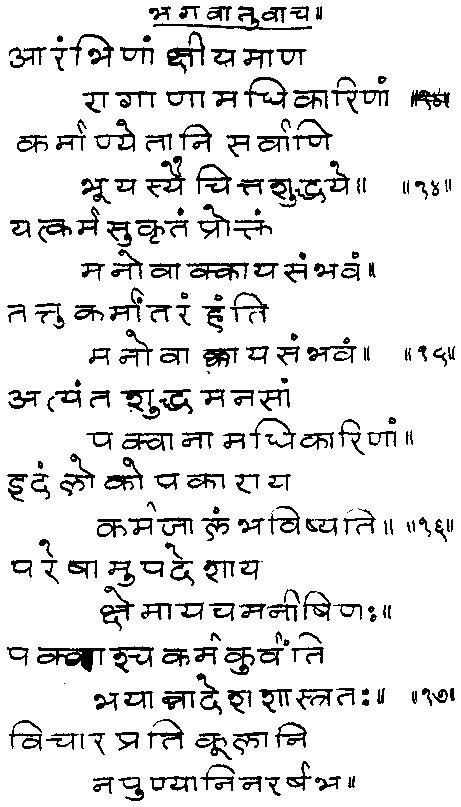 भगवानुवाच॥
आरंभिणां क्षीयमाण
रागाणामधिकारिणां
कर्माण्येतानि सर्वाणि
भूयस्यै चित्तशुद्धये॥ ॥१४॥
यत्कर्मसुकृतं प्रोक्तं
मनोवाक्कायसंभवं॥
तत्तु कर्मांतरं हंति
मनोवाक्कायसंभवं॥ ॥१५॥
अत्यंतशुद्धमनसां
पक्वानामधिकारिणां॥
इदं लोकोपकाराय
कर्मजालं भविष्यति॥ ॥१६॥
परेषामुपदेशाय
क्षेमायचमनीषिणः॥
पक्वाश्चकर्मकुर्वंति
भयान्नादेशशास्त्रतः॥ ॥१७॥
विचारप्रतिकूलानि
नपुण्यानिनरर्षभ॥